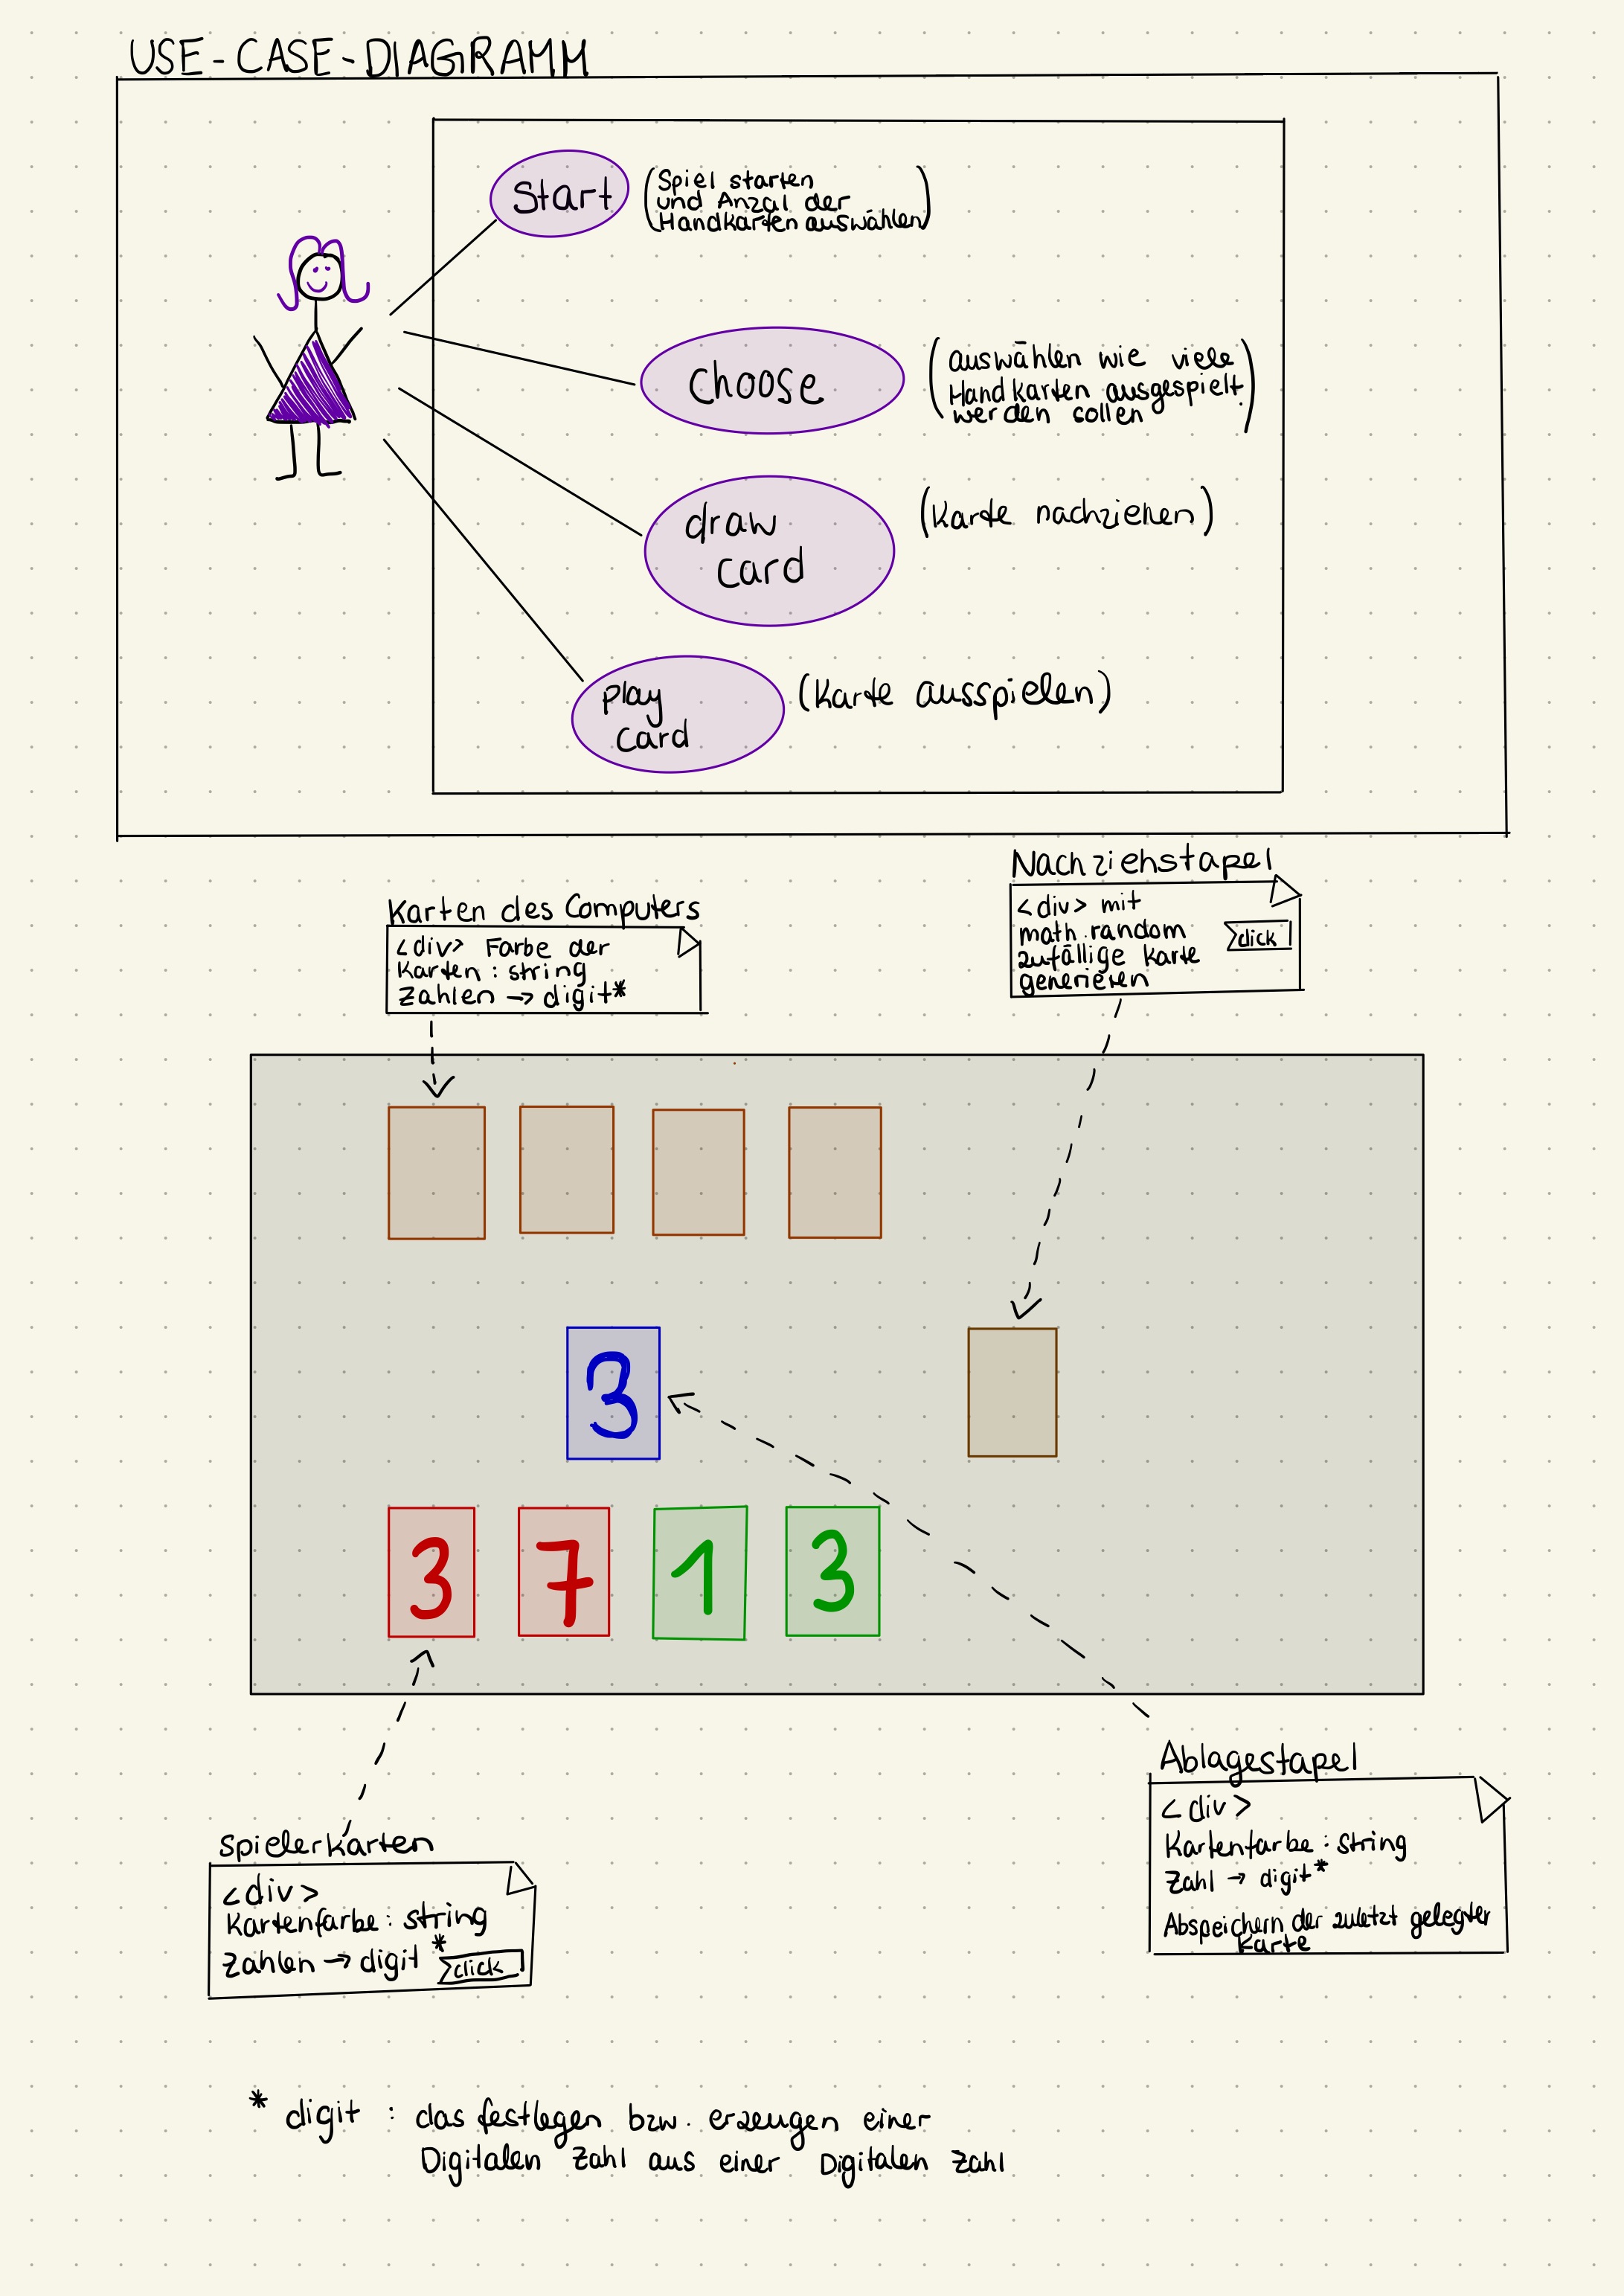 USE-CASE-DIAGRAMM
Start
(Spiel starten
und Anzal der
Handkarten auswählen)
choose
(auswählen wie viele
Handkarten ausgespielt
werden sollen)
draw
card
(Karte nachziehen)
play
card
(Karte ausspielen)
Nachziehstapel
<div> mit
math.random
zufällige Karte
generieren
click
Karten des Computers
<div> Farbe der
Karten : string
Zahlen → digit*
3
3
7
1
3
Ablagestapel
<div>
Kartenfarbe : string
Zahl → digit*
Abspeichern der zuletzt gelegter
Karte
Spielerkarten
<div>
Kartenfarbe : string
Zahlen → digit*
click
* digit : das festlegen bzw. erzeugen einer
Digitalen Zahl aus einer Digitalen Zahl